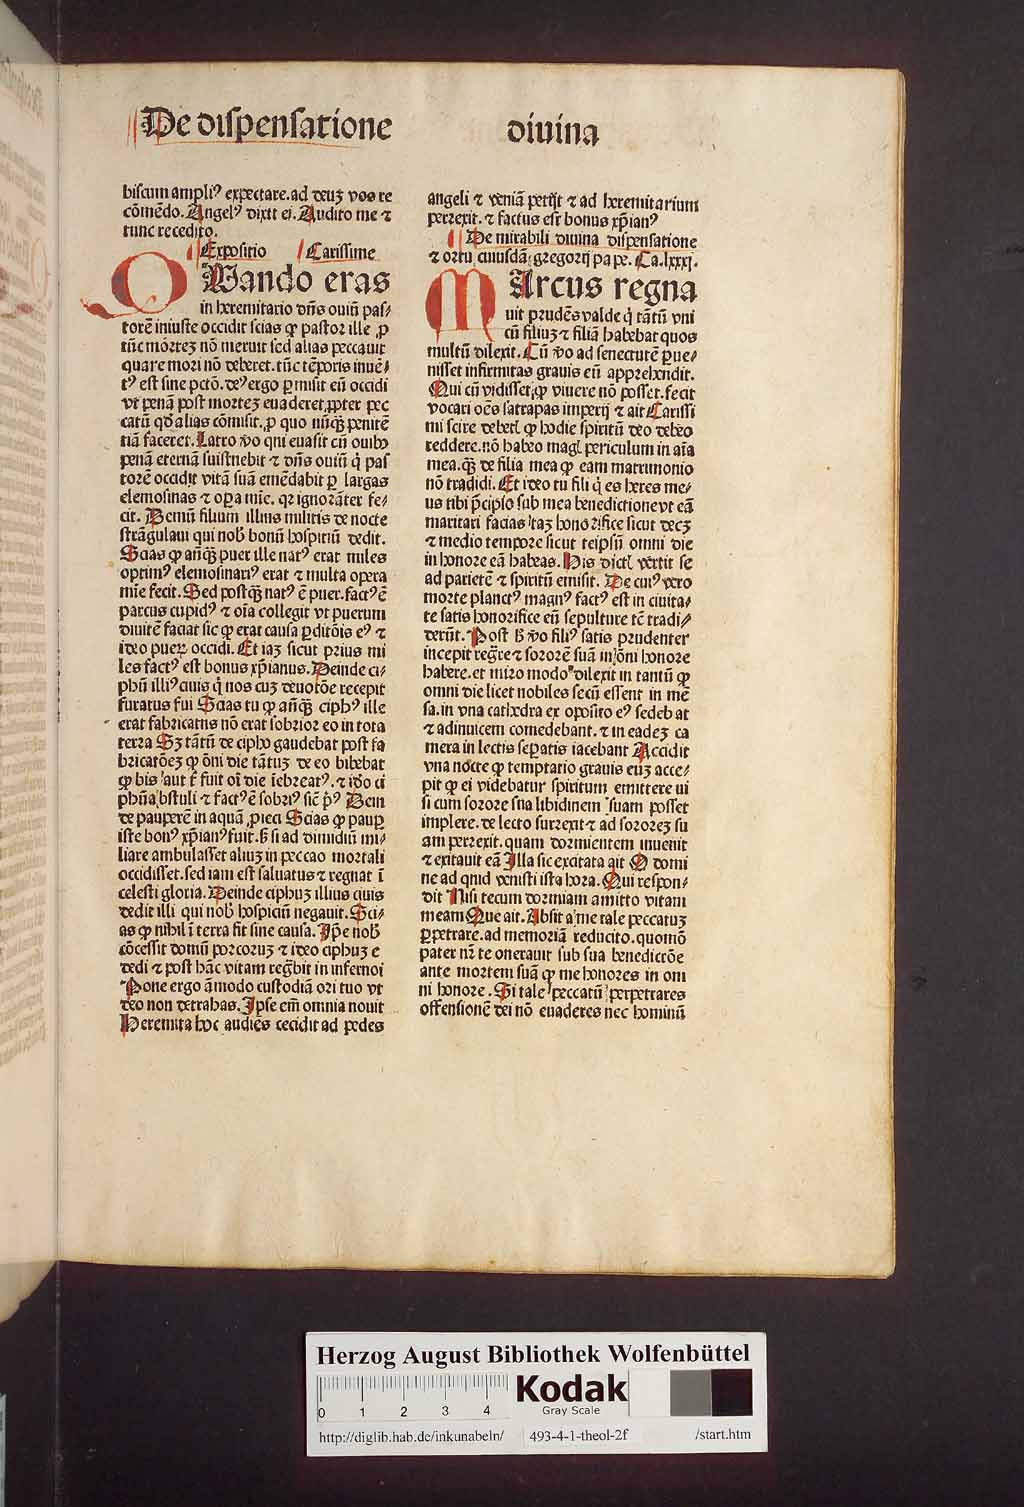 De dispensatione diuina
biscum ampliꝰ expectare. ad deuʒ vos re
cōmēdo. Angelꝰ dixit ei. Audito me ⁊
tunc recedito.
Expositio Carissime
QUando eras
in heremitario dn̄s ouiū pas⸗
torē iniuste occidit scias ꝙ pastor ille ꝓ
tūc morteʒ nō meruit sed alias peccauit
quare mori nō deberet. tūc tēporis inuē⸗
tꝰ est sine pctō. deꝰ ergo ꝑmisit eū occidi
vt penā post morteʒ euaderet ꝓpter pec
catū qd̄ alias cōmisit. ꝓ quo nūꝗ̄ penitē
tiā faceret. Latro v̄o qui euasit cū ouibꝰ
penā eternā sustinebit ⁊ dn̄s ouiū q̇ pas
torē occidit vitā suā emēdabit ꝑ largas
elemosinas ⁊ oꝑa mīe. qꝛ ignorāter fe⸗
cit. Demū filium illius militis de nocte
strāgulaui qui nob̄ bonū hospitiū dedit.
Scias ꝙ añꝗ̄ puer ille natꝰ erat miles
optimꝰ elemosinariꝰ erat ⁊ multa opera
mīe fecit. Sed postꝗ̄ natꝰ ē puer. factꝰ ē
parcus cupidꝰ ⁊ oīa collegit vt puerum
diuitē faciat sic ꝙ erat causa ꝑditōis eꝰ ⁊
ideo pueꝝ occidi. Et iaʒ sicut prius mi
les factꝰ est bonus xp̄ianus. Deinde ci⸗
phū illiꝰ ciuis q̇ nos cuʒ deuotōe recepit
furatus fui Scias tu ꝙ añꝗ̄ ciphꝰ ille
erat fabricatus nō erat sobrior eo in tota
terra Sʒ tātū de cipho gaudebat post fa
bricatōeʒ ꝙ ōni die tātuʒ de eo bibebat
ꝙ bis aut ť fuit oī die iēbreatꝰ. ⁊ iđo ci
phū abstuli ⁊ factꝰ ē sobriꝰ sic̄ pꝰ̄ Dein
de pauperē in aquā ꝓieci Scias ꝙ pauꝑ
iste bonꝰ xp̄ianꝰ fuit. ꝧ si ad dimidiū mi⸗
liare ambulasset aliuʒ in peccao mortali
occidisset. sed iam est saluatus ⁊ regnat ī
celesti gloria. Deinde ciphuʒ illius ciuis
dedit illi qui nob̄ hospiciū negauit. Sci⸗
as ꝙ nihil ī terra fit sine causa. Ip̄e nob̄
cōcessit domū porcoruʒ ⁊ ideo ciphuʒ e
dedi ⁊ post hāc vitam regn̄bit in infernoi
Pone ergo āmodo custodiā ori tuo vt
deo non detrahas. Ipse em̄ omnia nouit
Heremita hoc audiēs cecidit ad pedes
angeli ⁊ veniā petijt ⁊ ad heremitarium
perrexit. ⁊ factus est bonus xp̄ianꝰ
De mirabili diuina dispensatione
⁊ ortu cuiusdā gregorij pape. Ca. lxxxj.
MArcus regna
uit prudēs valde q̇ tātū vni
cū filiuʒ ⁊ filiā habebat quos
multū dilexit. Cū v̄o ad senectutē ꝑue⸗
nisset infirmitas grauis eū apprehendit.
Qui cū vidisset ꝙ viuere nō posset. fecit
vocari oēs satrapas imperij ⁊ ait Carissi
mi scire debetꝭ ꝙ hodie spiritū deo debeo
reddere. nō habeo magꝭ periculum in aīa
mea. ꝗ̄ de filia mea ꝙ eam matrimonio
nō tradidi. Et ideo tu fili q̇ es heres me⸗
us tibi p̄cipio sub mea benedictione vt eā
maritari facias taʒ honorifice sicut decʒ
⁊ medio tempore sicut teipsū omni die
in honore eā habeas. His dictꝭ vertit se
ad parietē ⁊ spiritū emisit. De cuiꝰ vero
morte planctꝰ magnꝰ factꝰ est in ciuita⸗
te satis honorifice eū sepulture tē tradi⸗
derūt. Post ꝧ v̄o filiꝰ satis prudenter
incepit reg̃re ⁊ sororē suā in ōni honore
habere. et miro modo dilexit in tantū ꝙ
omni die licet nobiles secū essent in mē
sa. in vna cathedra ex oposito eꝰ sedebat
⁊ adinuicem comedebant. ⁊ in eadeʒ ca
mera in lectis seꝑatis iacebant Accidit
vna nocte ꝙ temptatio grauis euʒ acce⸗
pit ꝙ ei videbatur spiritum emittere ui
si cum sorore sua libidinem suam posset
implere. de lecto surrexit ⁊ ad sororeʒ su
am perrexit. quam dormientem inuenit
⁊ exitauit eā Illa sic excitata ait O domi
ne ad quid venisti ista hora. Qui respon⸗
dit Nisi tecum dormiam amitto vitam
meam Que ait. Absit a me tale peccatuʒ
ꝑpetrare. ad memoriā reducito. quomō
pater nr̄ te onerauit sub sua benedictōe
ante mortem suā ꝙ me honores in om
ni honore. Si tale peccatū perpetrares
offensionē dei nō euaderes nec hominū
Herzog August Bibliothek Wolfenbüttel
0 1 2 3 4
Kodak
Gray Scale
http://diglib.hab.de/inkunabeln/ 493-4-1-theol-2f /start.htm